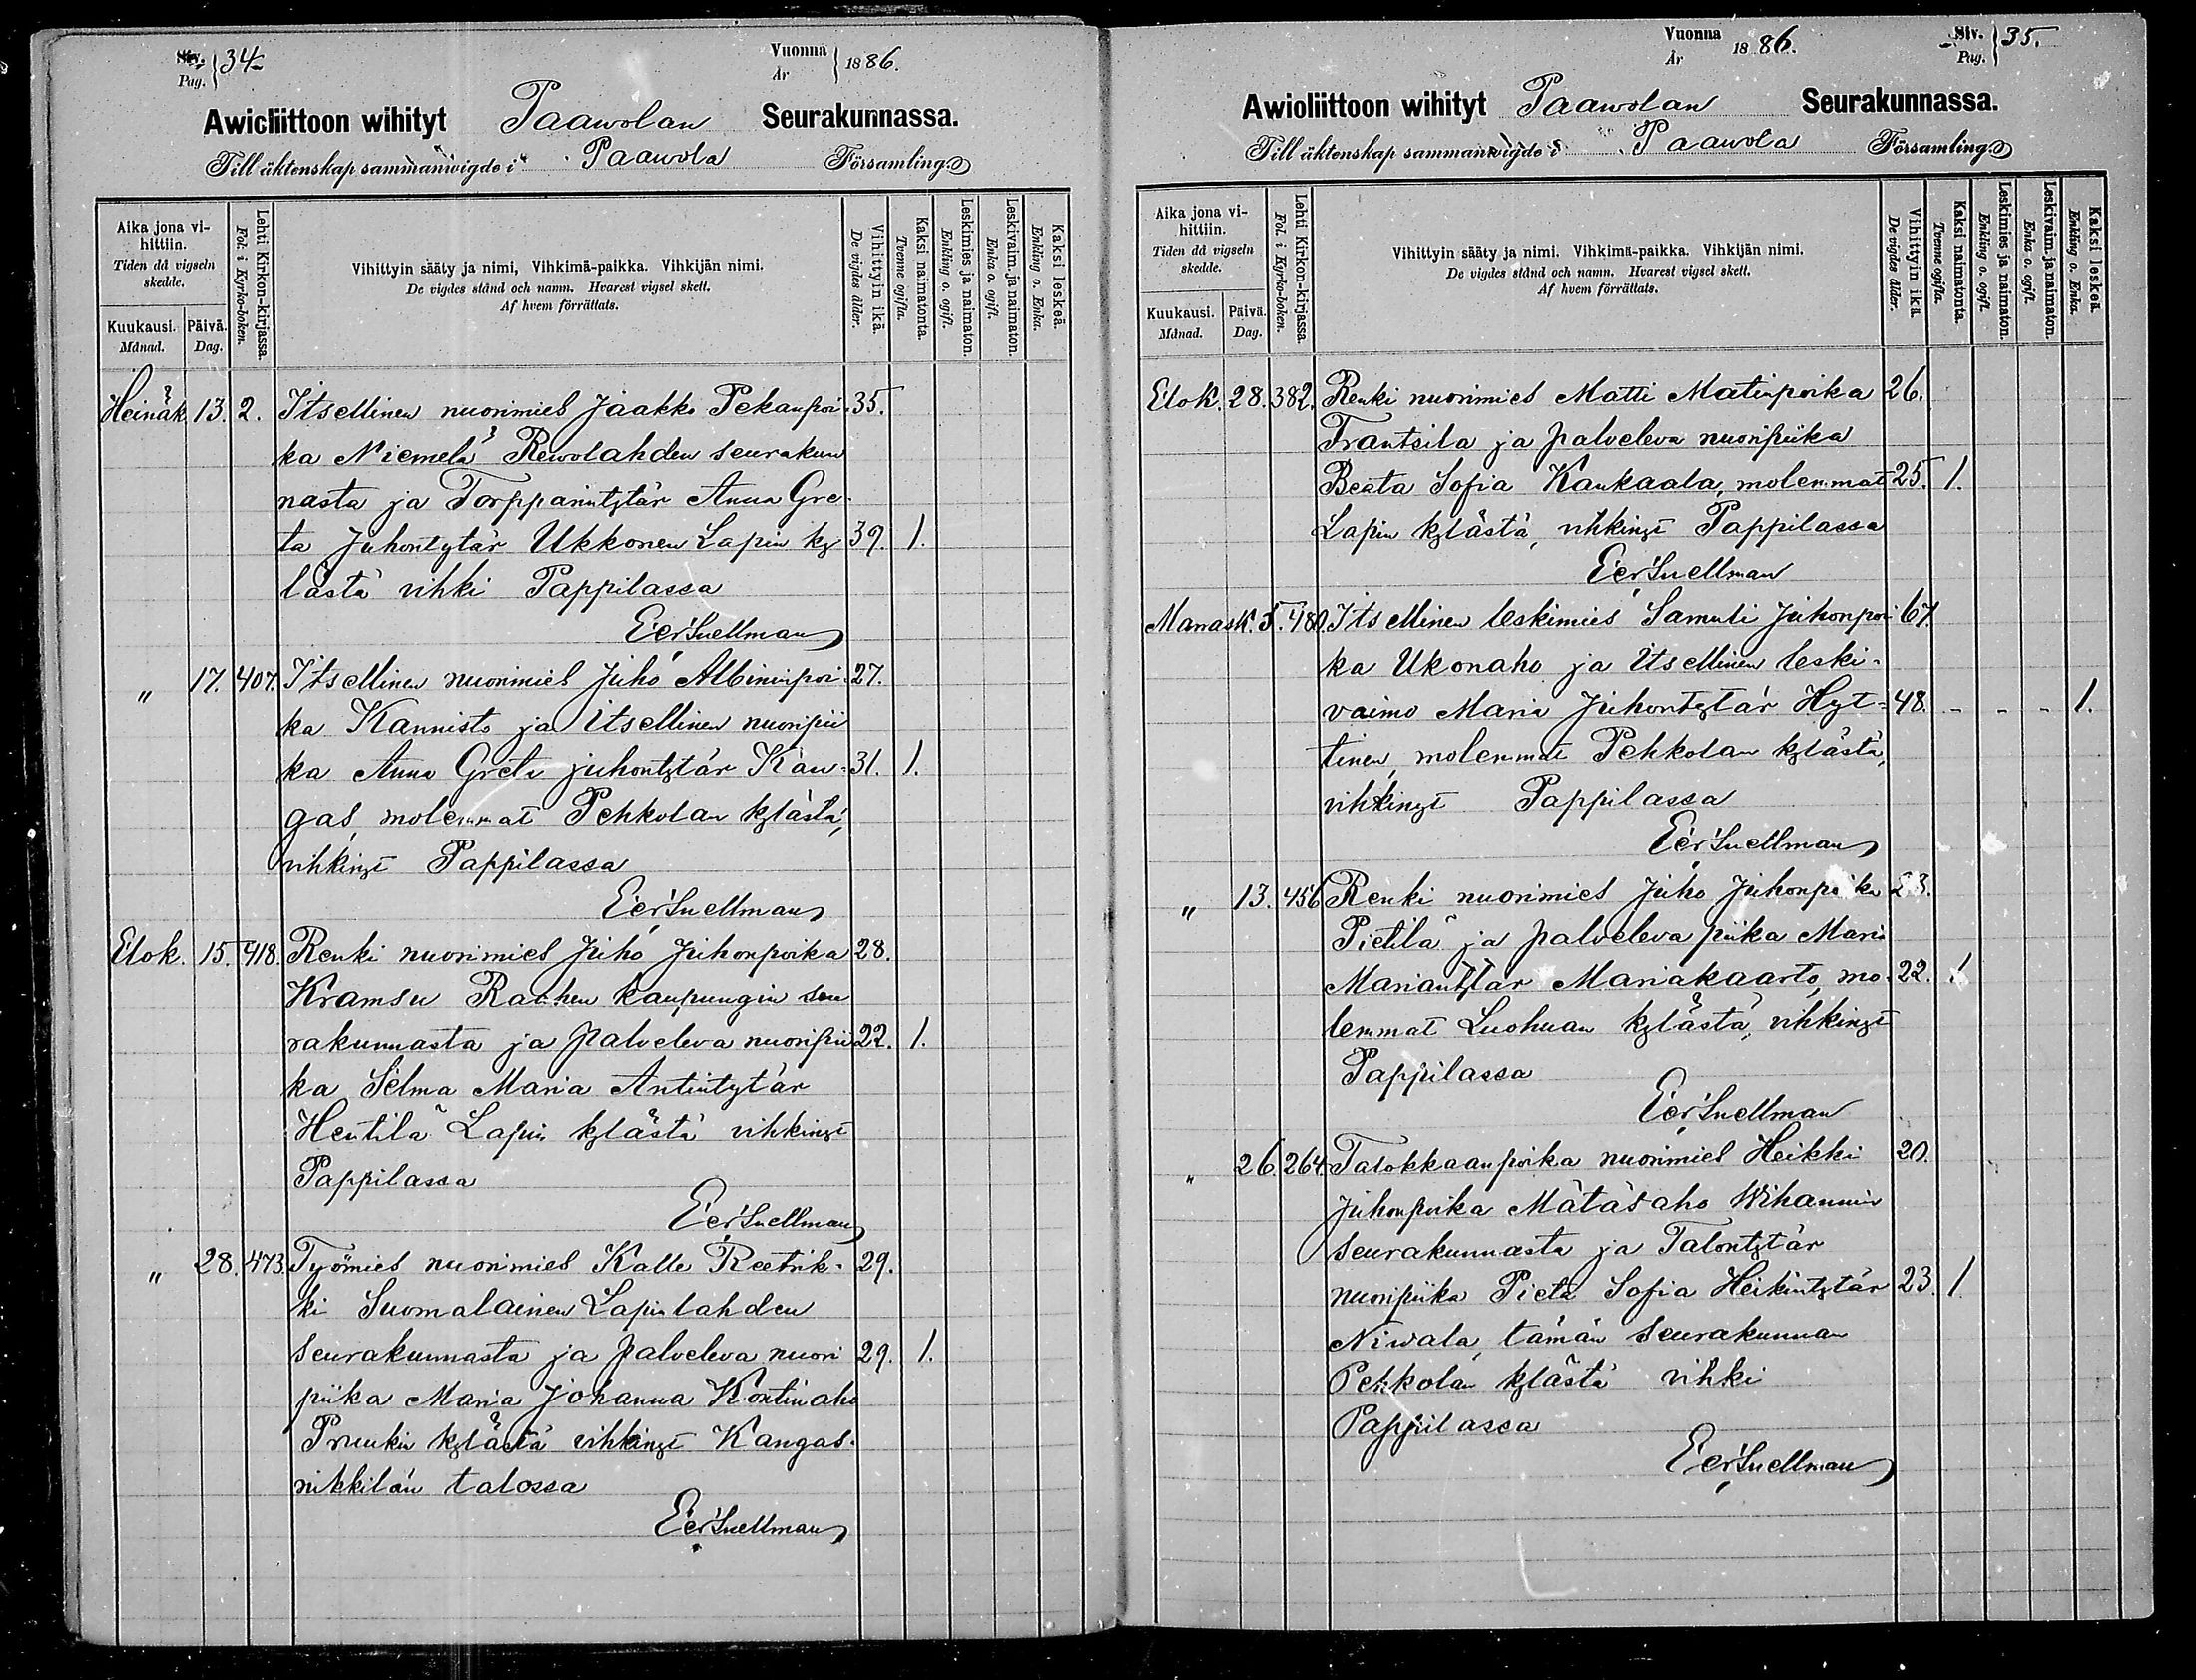 Siv. Pag. 34.
Vuonna År 1886.
Awioliittoon wihityt Paawolan Seurakunnassa.
Till äktenskap sammanwigde i Paawola Församling
Aika jona vihittiin. Tiden då vigseln skedde.
Kuukausi. Månad.
Päivä. Dag.
Lehti Kirkon-kirjassa. Fol. i Kyrko-boken.
Vihittyin sääty ja nimi, Vihkimä-paikka. Vihkijän nimi.
De vigdes stånd och namn. Hvarest vigsel skett.
Af hvem förrättats.
Vihittyin ikä. De vigdes ålder.
Kaksi naimatonta. Tvenne ogifta.
Leskimies ja naimaton. Enkling o. ogift.
Leskivaim. ja naimaton. Enka o. ogift.
Kaksi leskeä. Enkling o. Enka.
Heinäk. 13. 2. Itsellinen nuorimies Jaakko Pekanpoi- 35.
ka Niemelä Rewolahden seurakun
nasta ja Torpparintytär Anna Gre-
ta Juhontytär Ukkonen Lapin ky 39. 1.
lästä vihki Pappilassa
Eer Snellman
" 17. 407. Itsellinen nuorimies Juho Albininpoi- 27.
ka Kannisto ja Itsellinen nuoripii
ka Anna Greta juhontytär Kan- 31. 1.
gas, molemmat Pehkolan kylästä,
vihkinyt Pappilassa
Eer Snellman
Elok. 15. 418. Renki nuorimies Juho Juhonpoika 28.
Kramsu Raahen kaupungin seu
rakunnasta ja palveleva nuoripii 22. 1.
ka Selma Maria Antintytär
Hentilä Lapin kylästä vihkinyt
Pappilassa
Eer Snellman
" 28. 473. Työmies nuorimies Kalle Reetrik- 29.
ki Suomalainen Lapinlahden
seurakunnasta ja palveleva nuori 29. 1.
piika Maria Johanna Kontinaho
Pruukin kylästä vihkinyt Kangas-
nikkilän talossa
Eer Snellman
Vuonna År 1886.
Siv. Pag. 35.
Awioliittoon wihityt Paawolan Seurakunnassa.
Till äktenskap sammanwigde i Paawola Församling
Aika jona vihittiin. Tiden då vigseln skedde.
Kuukausi. Månad.
Päivä. Dag.
Lehti Kirkon-kirjassa. Fol. i Kyrko-boken.
Vihittyin sääty ja nimi. Vihkimä-paikka. Vihkijän nimi.
De vigdes stånd och namn. Hvarest vigsel skett.
Af hvem förrättats.
Vihittyin ikä. De vigdes ålder.
Kaksi naimatonta. Tvenne ogifta.
Leskimies ja naimaton. Enkling o. ogift.
Leskivaim. ja naimaton. Enka o. ogift.
Kaksi leskeä. Enkling o. Enka.
Elok. 28. 382. Renki nuorimies Matti Matinpoika 26.
Frantsila ja palveleva nuoripiika
Beata Sofia Kaukaala, molemmat 25. 1.
Lapin kylästä, vihkinyt Pappilassa
Eer Snellman
Marrask. 5. 480. Itsellinen leskimies Samuli Juhonpoi- 67.
ka Ukonaho ja itsellinen leski-
vaimo Maria Juhontytär Hyt- 48. - - - 1.
tinen, molemmat Pehkolan kylästä,
vihkinyt Pappilassa
Eer Snellman
" 13. 456 Renki nuorimies Juho Juhonpoika 23.
Pietilä ja palveleva piika Maria
Mariantytär Mariakaarto, mo- 22. 1
lemmat Luohuan kylästä, vihkinyt
Pappilassa
Eer Snellman
" 26. 264. Talokkaanpoika nuorimies Heikki 20.
Juhonpoika Mätäsaho Wihannin
seurakunnasta ja Talontytär
nuoripiika Pieta Sofia Heikintytär 23. 1
Niwala, tämän seurakunnan
Pehkolan kylästä vihki
Pappilassa
Eer Snellman